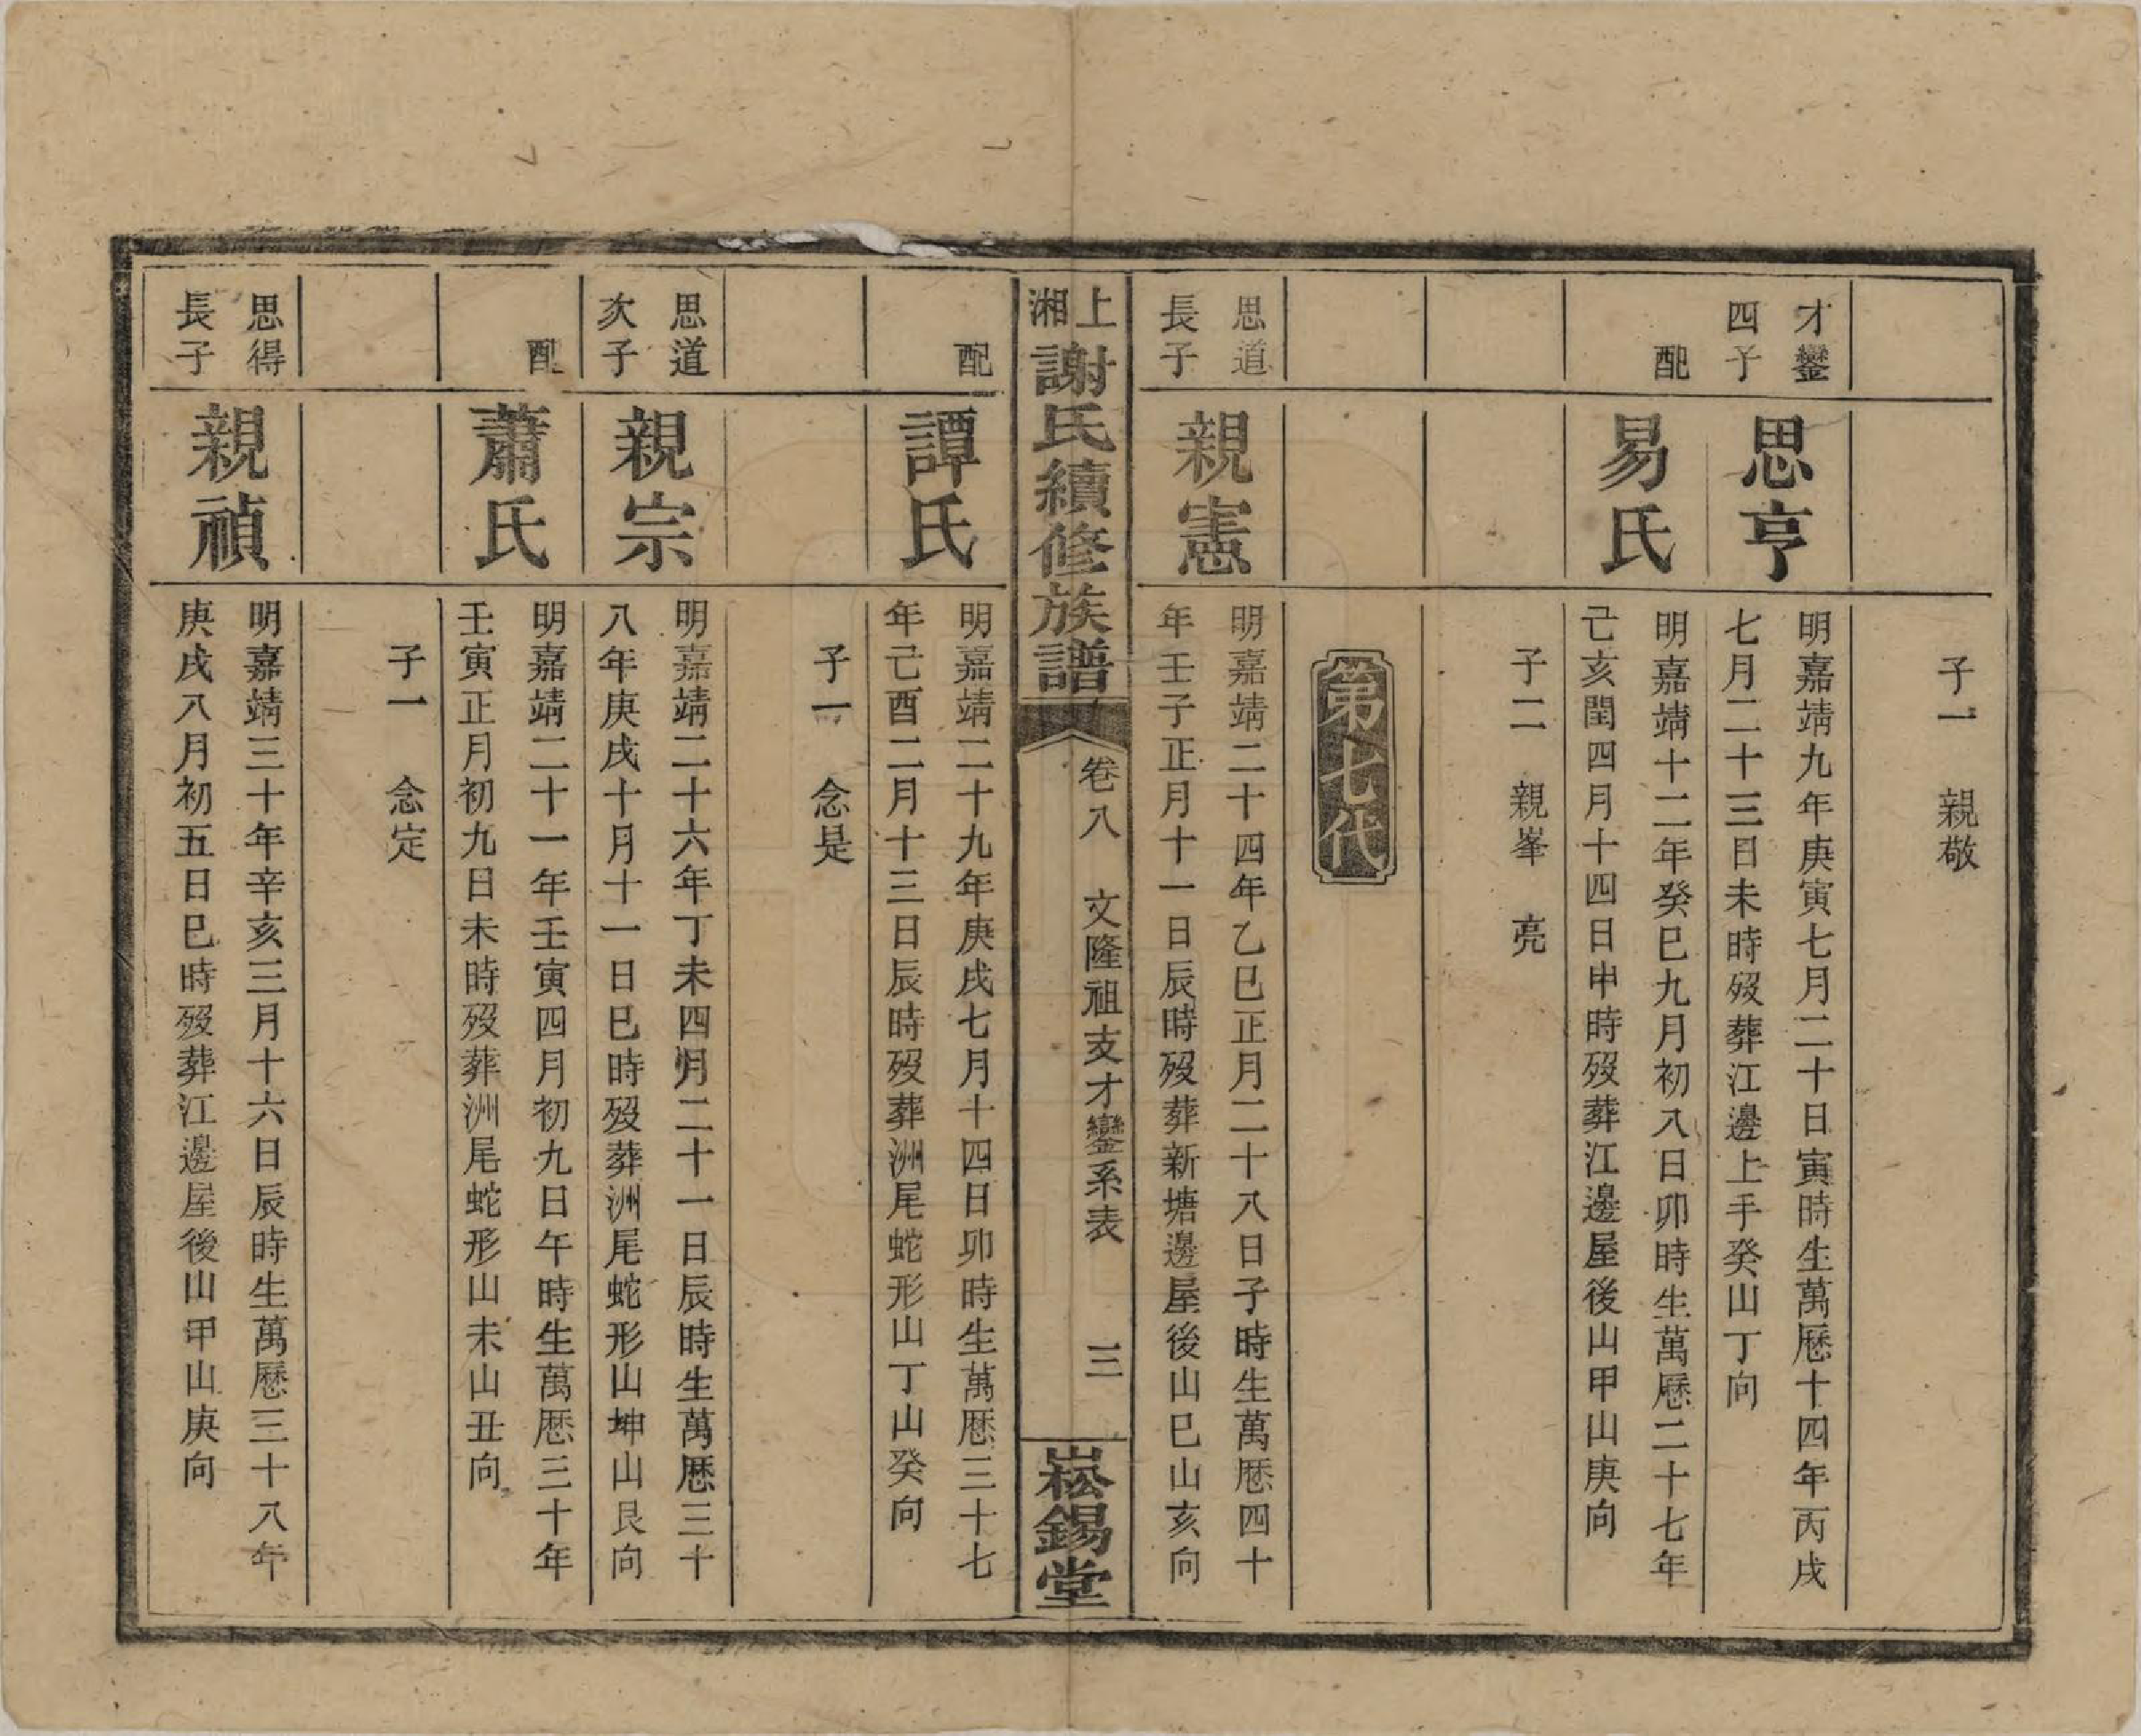 子一　親敬
才鑾
四子
思亨
明嘉靖九年庚寅七月二十日寅時生萬曆十四年丙戌
七月二十三日未時歿葬江邊上手癸山丁向
配
易氏
明嘉靖十二年癸巳九月初八日卯時生萬曆二十七年
己亥閏四月十四日申時歿葬江邊屋後山甲山庚向
子二　親峯　亮
第七代
思道
長子
親憲
明嘉靖二十四年乙巳正月二十八日子時生萬曆四十
年壬子正月十一日辰時歿葬新塘邊屋後山巳山亥向
上湘
謝氏續修族譜
卷八　文隆祖支才鑾系表　三
崧錫堂
配
譚氏
明嘉靖二十九年庚戌七月十四日卯時生萬曆三十七
年己酉二月十三日辰時歿葬洲尾蛇形山丁山癸向
子一　念是
思道
次子
親宗
明嘉靖二十六年丁未四月二十一日辰時生萬曆三十
八年庚戌十月十一日巳時歿葬洲尾蛇形山坤山艮向
配
蕭氏
明嘉靖二十一年壬寅四月初九日午時生萬曆三十年
壬寅正月初九日未時歿葬洲尾蛇形山未山丑向
子一　念定
思得
長子
親禎
明嘉靖三十年辛亥三月十六日辰時生萬曆三十八年
庚戌八月初五日巳時歿葬江邊屋後山甲山庚向